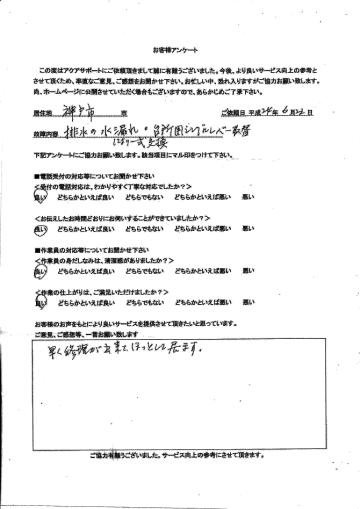 お客様アンケート
この度はアクアサポートにご依頼頂きまして誠に有難うございました。今後、より良いサービス向上の参考と
させて頂くため、率直なご意見、ご感想をお聞かせ下さい。お忙しい中、恐れ入りますがご協力お願い致します。
尚、ホームページに公開させていただく場合もございますので、あらかじめご了承下さい。
居住地 神戸市 市 ご依頼日 平成24年 6月22日
故障内容 排水の水漏れ・台所用シングルレバー取替
一式交換
下記アンケートにご協力お願い致します。該当項目にマル印をつけて下さい。
■電話受付の対応等についてお聞かせ下さい
＜受付の電話対応は、わかりやすく丁寧な対応でしたか？＞
良い どちらかといえば良い どちらでもない どちらかといえば悪い 悪い
＜お伝えしたお時間どおりにお伺いすることができていましたか？＞
良い どちらかといえば良い どちらでもない どちらかといえば悪い 悪い
■作業員の対応等についてお聞かせ下さい
＜作業員の身だしなみは、清潔感がありましたか？＞
良い どちらかといえば良い どちらでもない どちらかといえば悪い 悪い
＜作業の仕上がりは、ご満足いただけましたか？＞
良い どちらかといえば良い どちらでもない どちらかといえば悪い 悪い
お客様のお声をもとにより良いサービスを提供させて頂きたいと思っています。
ご意見、ご感想等、一言お願い致します
早く修理が出来てほっとして居ます。
ご協力有難うございました。サービス向上の参考にさせて頂きます。